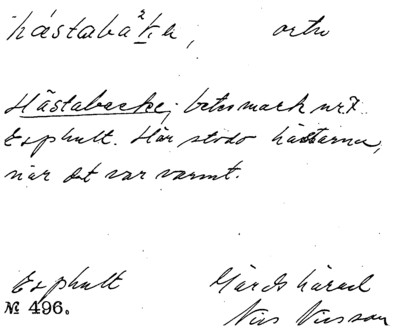 hästaba²kk̥a, ortn
Hästabacke; betesmark nr 7
Esphult. Här stodo hästarna,
när det var varmt.
Esphult Gärds härad
№ 496. Nils Nilsson